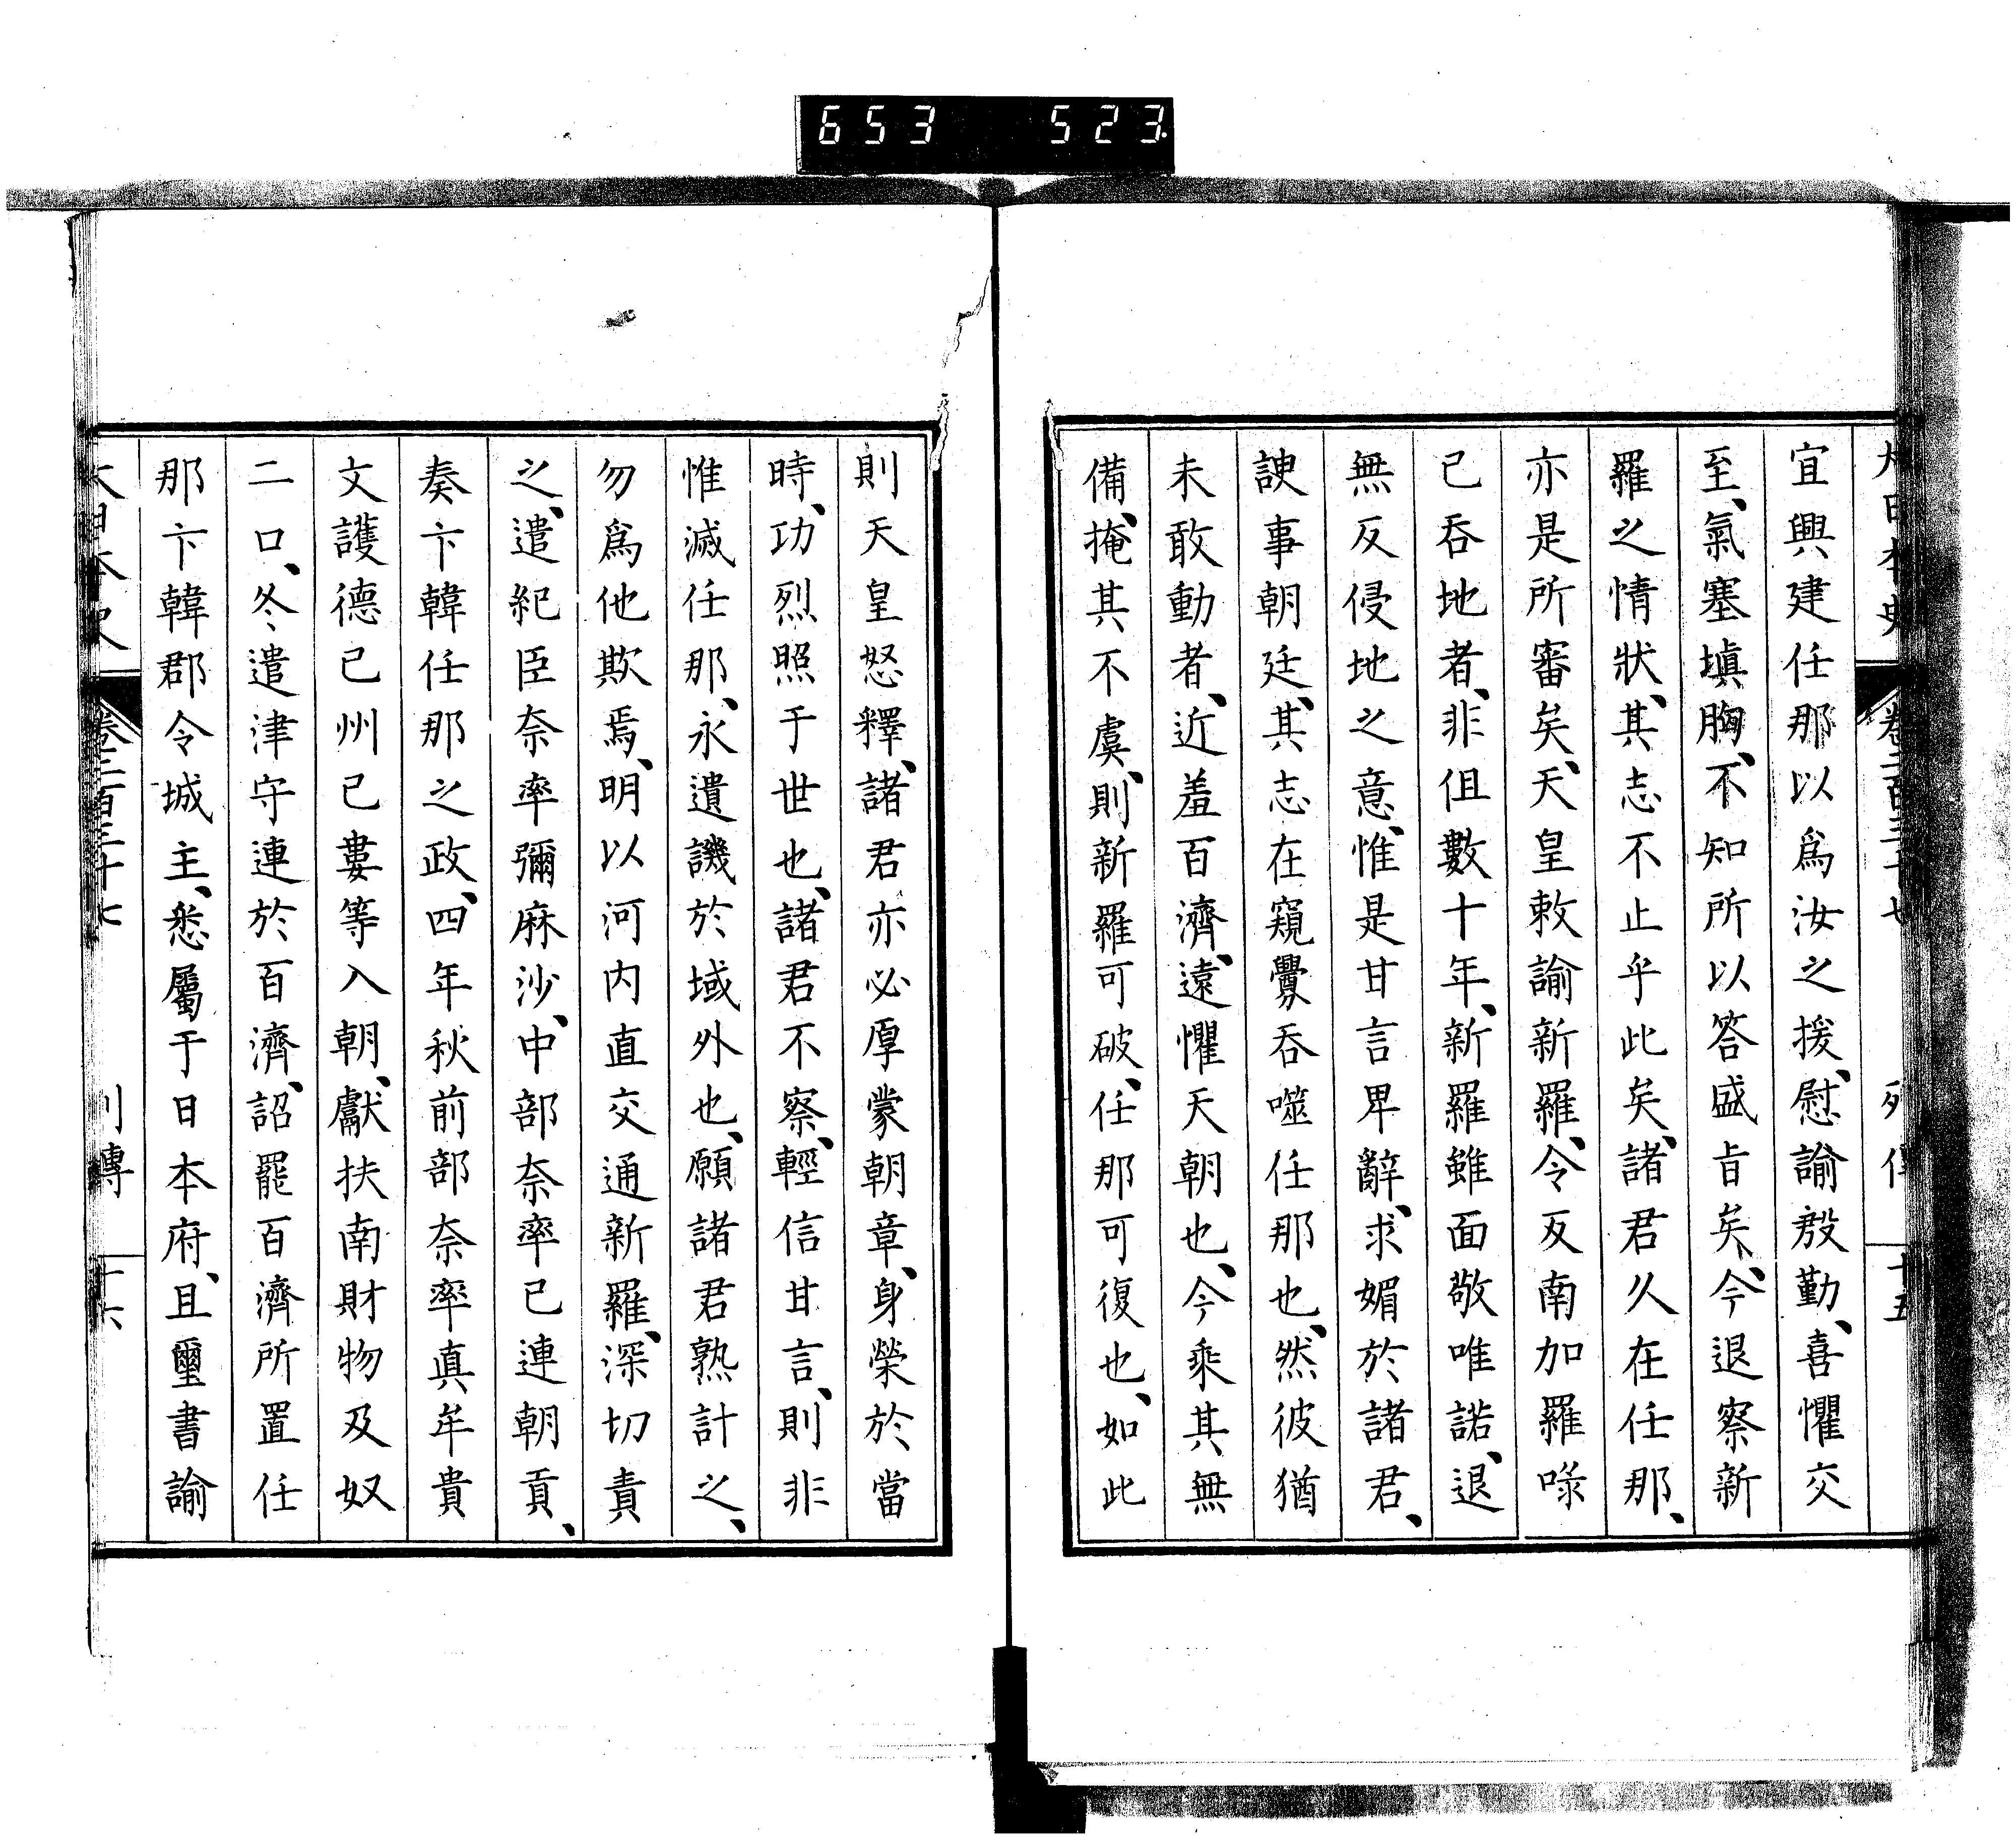 653 523
大日本史 卷二百三十七 列傳 十五
宜興建任那以爲汝之援、慰諭慇勤、喜懼交
至、氣塞塡胸、不知所以答盛旨矣、今退察新
羅之情狀、其志不止乎此矣、諸君久在任那、
亦是所審矣、天皇敕諭新羅、令反南加羅㖨
己吞地者、非但數十年、新羅雖面敬唯諾、退
無反侵地之意、惟是甘言卑辭、求媚於諸君、
諛事朝廷、其志在窺釁吞噬任那也、然彼猶
未敢動者、近羞百濟、遠懼天朝也、今乘其無
備、掩其不虞、則新羅可破、任那可復也、如此
則天皇怒釋、諸君亦必厚蒙朝章、身榮於當
時、功烈照于世也、諸君不察、輕信甘言、則非
惟滅任那、永遺譏於域外也、願諸君熟計之、
勿爲他欺焉、明以河内直交通新羅、深切責
之、遣紀臣奈率彌麻沙、中部奈率己連朝貢、
奏卞韓任那之政、四年秋前部奈率真牟貴
文護德己州己婁等入朝、獻扶南財物及奴
二口、冬遣津守連於百濟、詔罷百濟所置任
那卞韓郡令城主、悉屬于日本府、且璽書諭
大日本史 卷二百三十七 列傳 十六